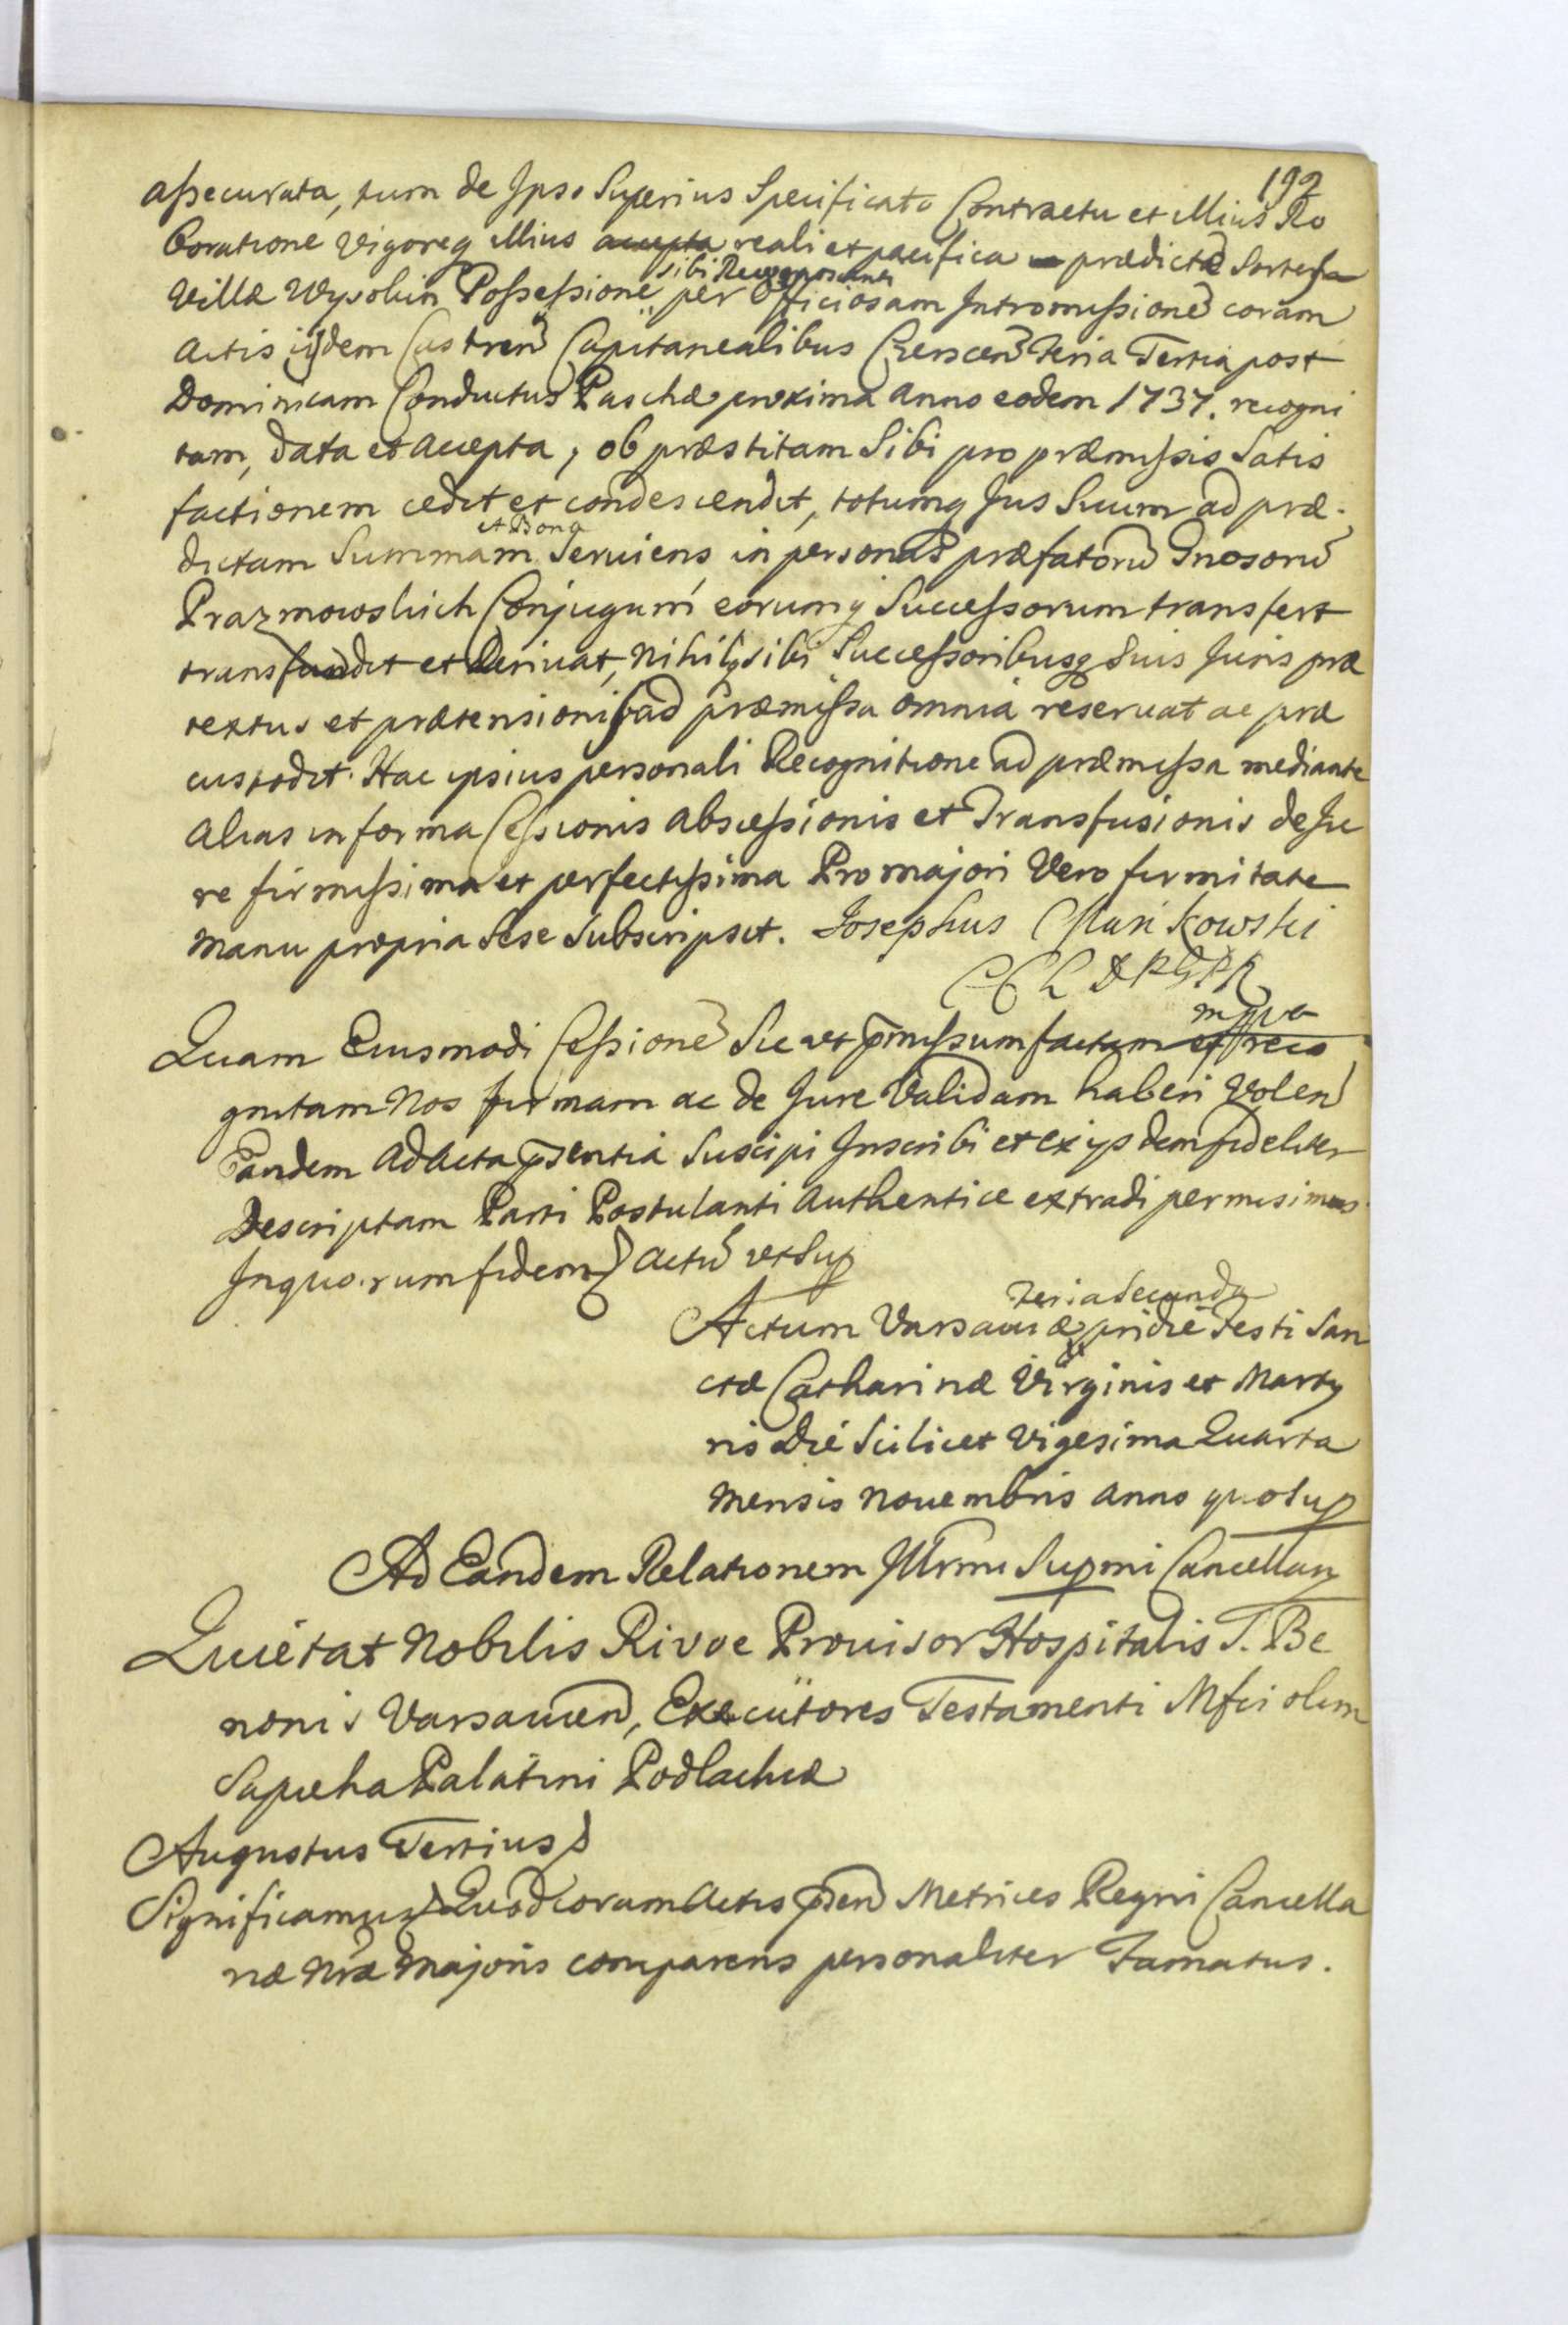 192
assecurata, tum de Ipso Superius Specificato Contractu et illius Ro
boratione Vigoreq illius accepta reali et pacifica prædictæ Sortis
sibi Recognoscentis
Villæ Wysokin Possessione per Officiosam Intromissionē coram
Actis ijsdem Castren Capitanealibus Czerscen Feria Tertia post
Dominicam Conductus Paschæ proxima Anno eodem 1737. recogni
tam, data et accepta, ob præstitam Sibi pro præmissis Satis
factionem cedit et condescendit, totumq Jus Suum ad præ-
et Bona
dictam Summam Serviens in personas præfatorū Gnosorū
Prazmowskich Conjugum eorumq Successorum transfert
transfundit et Derivat, Nihilq sibi Successoribusq Suis Juris præ
textus et prætensionis ad præmissa omnia reservat ac præ
custodit. Hac ipsius personali Recognitione ad præmissa mediante
Alias in forma Cessionis Abscessionis et Transfusionis de Ju
re firmissima et perfectissima Pro majori Vero firmitate
manu propria Sese Subscripsit. Josephus Mańkowski
mppa
Quam Eiusmodi Cessionē Sic ut pmissum factam et reco
gnitam Nos firmam ac de Jure Validam haberi Volen
Eandem ad Acta psentia Suscipi Inscribi et ex ijsdem fideliter
Descriptam Parti Postulanti Authentice extradi permisimus.
In quorum fidem Actū ut Sup
Feria Secunda
Actum Varsaviæ pridie Festi San
ctæ Catharinæ Virginis et Marty
ris Die Scilicet Vigesima Quarta
Mensis Novembris Anno quo Sup
Ad Eandem Relationem Illrmi Supmi Cancellarij
Quietat Nobilis Rivoe Provisor Hospitalis S. Be
nonis Varsavien, Executores Testamenti Mfci olim
Sapieha Palatini Podlachiæ
Augustus Tertius
Significamus Quod coram Actis psen Metrices Regni Cancella
riæ Nræ Majoris comparens personaliter Famatus.